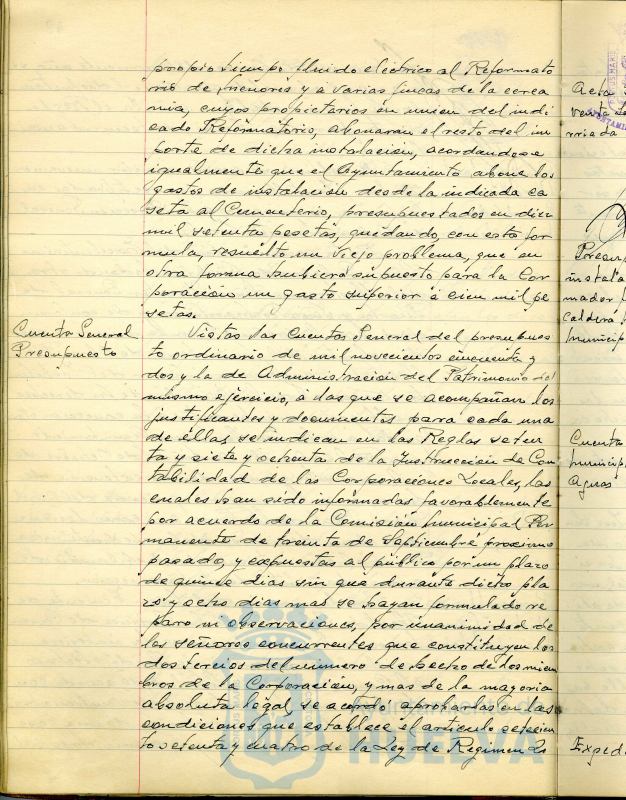 propio tiempo fluido eléctrico al Reformato
rio de Menores y a varias fincas de la cerca
nía, cuyos propietarios en union del indi
cado Reformatorio, abonaran el resto del im
porte de dicha instalación, acordandose
igualmente que el Ayuntamiento abone los
gastos de instalación desde la indicada ca
seta al Cementerio, presupuestados en diez
mil setenta pesetas, quedando, con esta for
mula, resuelto un viejo problema, que en
otra forma hubiera supuesto para la Cor
poración un gasto superior á cien mil pe
setas.
Cuenta General
Presupuesto
Vistas las Cuentas General del presupues
to ordinario de mil novecientos cincuenta y
dos y la de Administración del Patrimonio del
mismo ejercicio, á las que se acompañan los
justificantes y documentos para cada una
de éllas, se indican en las Reglas seten
ta y siete y ochenta de la Instrucción de Con
tabilidad de las Corporaciones Locales, las
cuales han sido informadas favorablemente
por acuerdo de la Comisión Municipal Per
manente de treinta de Septiembre proximo
pasado, y expuestas al público por un plazo
de quince dias sin que durante dicho pla
zo y ocho dias mas se hayan formulado re
paro ni observaciones, por unanimidad de
los señores concurrentes que constituyen los
dos tercios del número de hecho de los miem
bros de la Corporación, y mas de la mayoria
absoluta legal, se acordó aprobarlas en las
condiciones que establece el articulo setecien
tos setenta y cuatro de la Ley de Regimen Lo
HUELVA
Acta
venta
rriada
instala
mador
calderá
municip
Cuenta
municip
Aguas
Exped